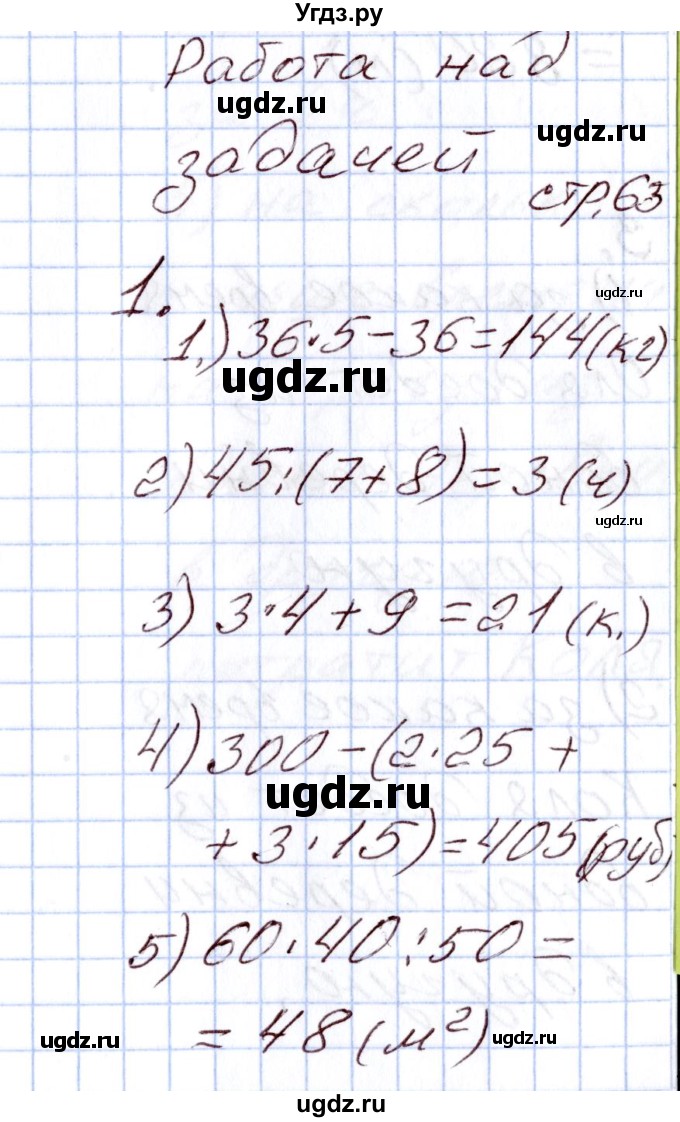 Угдз.ру
Работа над
ugdz.ru
ugdz.ru
задачей
стр. 63
ugdz.ru
1.
1.) 36·5-36=144(кг)
ugdz.ru
2) 45:(7+8)=3(ч)
ugdz.ru
3) 3·4+9=21(к.)
4) 300-(2·25+
ugdz.ru
+3·15)=405(руб)
5) 60·40:50=
=48(м²)
ugdz.ru
ugdz.ru
ugdz.ru